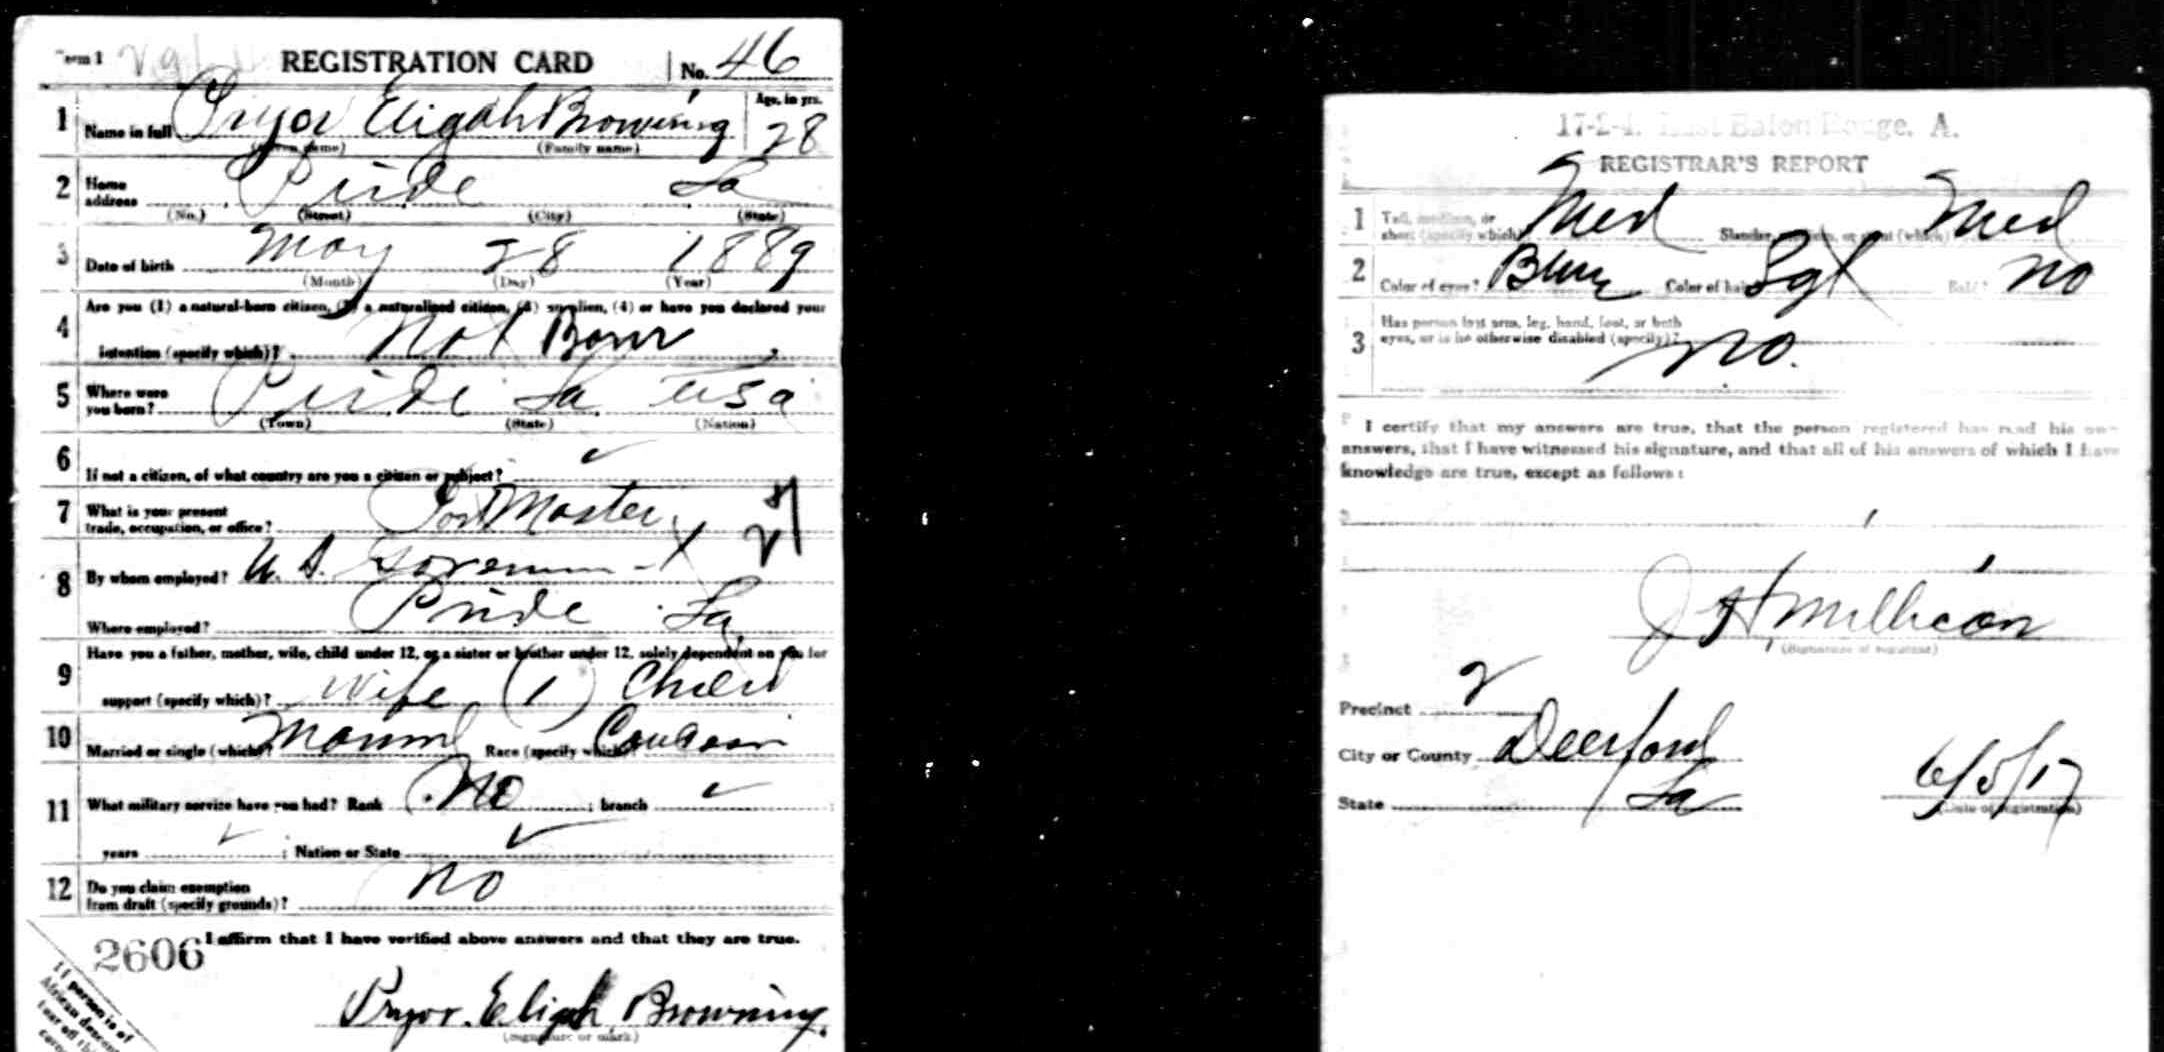 REGISTRATION CARD No. 46
1 Name in full Pryor Eligah Browning Age, in yrs. 28
(Given name) (Family name)
2 Home address Pride La
(No.) (Street) (City) (State)
3 Date of birth May 28 1889
(Month) (Day) (Year)
4 Are you (1) a natural-born citizen, (2) a naturalized citizen, (3) an alien, (4) or have you declared your
intention (specify which)? Nat Born
5 Where were you born? Pride La. USA
(Town) (State) (Nation)
6 If not a citizen, of what country are you a citizen or subject? ✓
7 What is your present trade, occupation, or office? Post Master
8 By whom employed? U. S.
Where employed? Pride La.
9 Have you a father, mother, wife, child under 12, or a sister or brother under 12, solely dependent on you for
support (specify which)? Wife (1) Child
10 Married or single (which)? Race (specify which)?
11 What military service have you had? Rank No ; branch ✓
years ✓ ; Nation or State ✓
12 Do you claim exemption from draft (specify grounds)? No
2606 I affirm that I have verified above answers and that they are true.
Pryor. Elijah Browning.
(Signature or mark)
If person is of
African descent
tear off this
17-2-4. East Baton Rouge. A.
REGISTRAR'S REPORT
1 Tall, medium, or short (specify which)? Med Slender, medium, or stout (which)? Med
2 Color of eyes? Blue Color of hair? Lgt Bald? No
3 Has person lost arm, leg, hand, foot, or both
eyes, or is he otherwise disabled (specify)? No.
I certify that my answers are true, that the person registered has read his own
answers, that I have witnessed his signature, and that all of his answers of which I have
knowledge are true, except as follows:
J H Millican
(Signature of registrar)
Precinct 2
City or County Deerford
State La 6/5/17
(Date of registration)